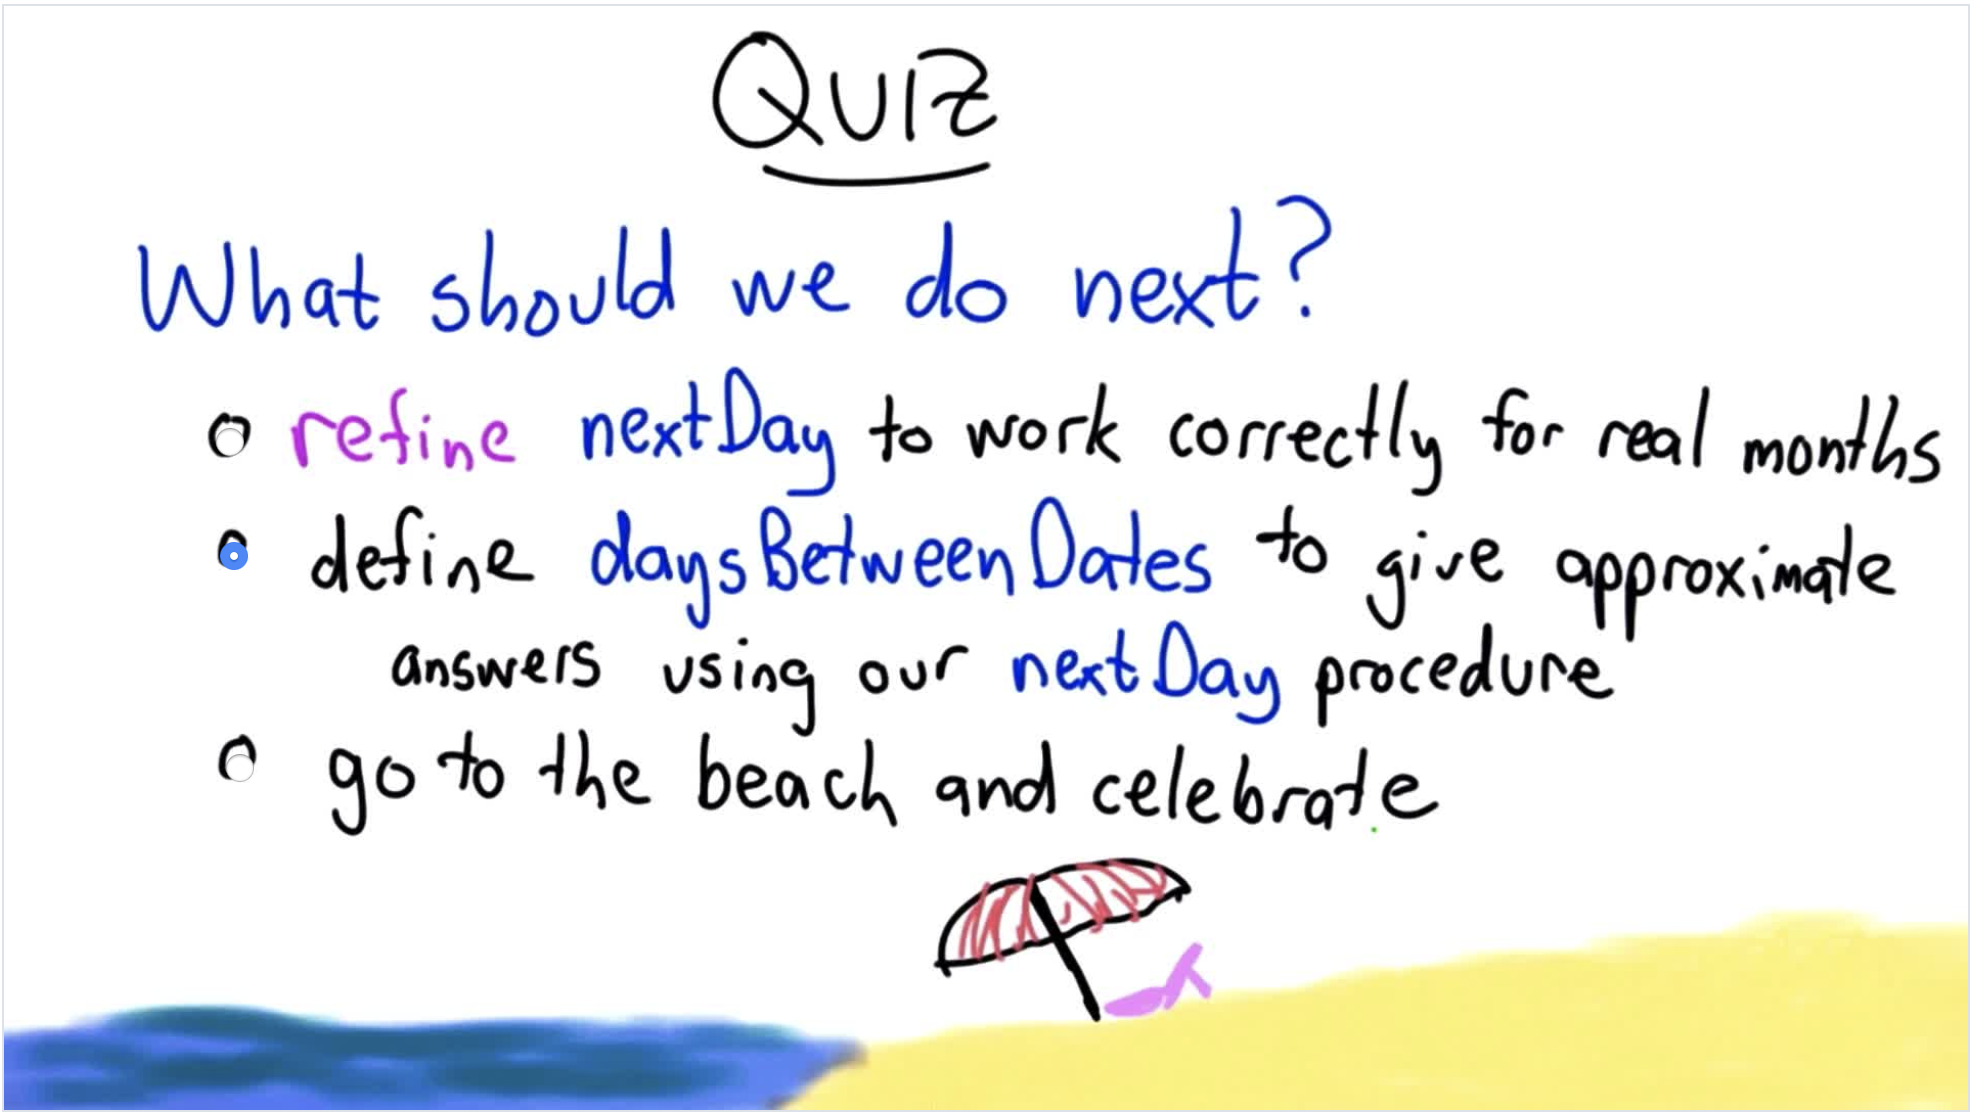 QUIZ
What should we do next?
refine nextDay to work correctly for real months
define daysBetweenDates to give approximate
answers using our nextDay procedure
go to the beach and celebrate